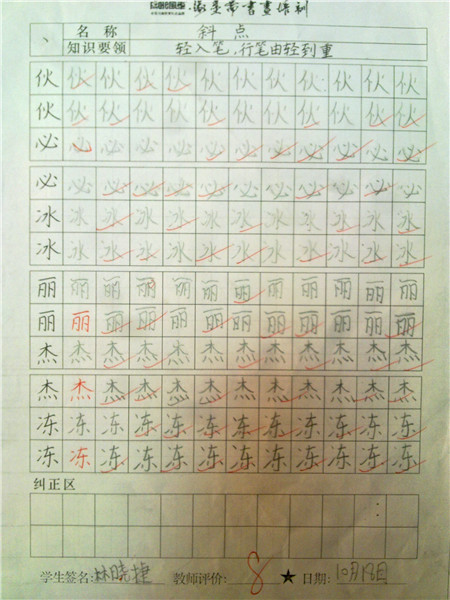 书画培训
名称 斜点
知识要领 轻入笔,行笔由轻到重
伙 伙 伙 伙 伙 伙 伙 伙 伙 伙 伙 伙
伙 伙 伙 伙 伙 伙 伙 伙 伙 伙 伙 伙
必 必 必 必 必 必 必 必 必 必 必 必
必 必 必 必 必 必 必 必 必 必 必 必
冰 冰 冰 冰 冰 冰 冰 冰 冰 冰 冰 冰
冰 冰 冰 冰 冰 冰 冰 冰 冰 冰 冰 冰
丽 丽 丽 丽 丽 丽 丽 丽 丽 丽 丽 丽
丽 丽 丽 丽 丽 丽 丽 丽 丽 丽 丽 丽
杰 杰 杰 杰 杰 杰 杰 杰 杰 杰 杰 杰
杰 杰 杰 杰 杰 杰 杰 杰 杰 杰 杰 杰
冻 冻 冻 冻 冻 冻 冻 冻 冻 冻 冻 冻
冻 冻 冻 冻 冻 冻 冻 冻 冻 冻 冻 冻
纠正区
学生签名:林晓捷 教师评价: 8 ★ 日期: 10月18日